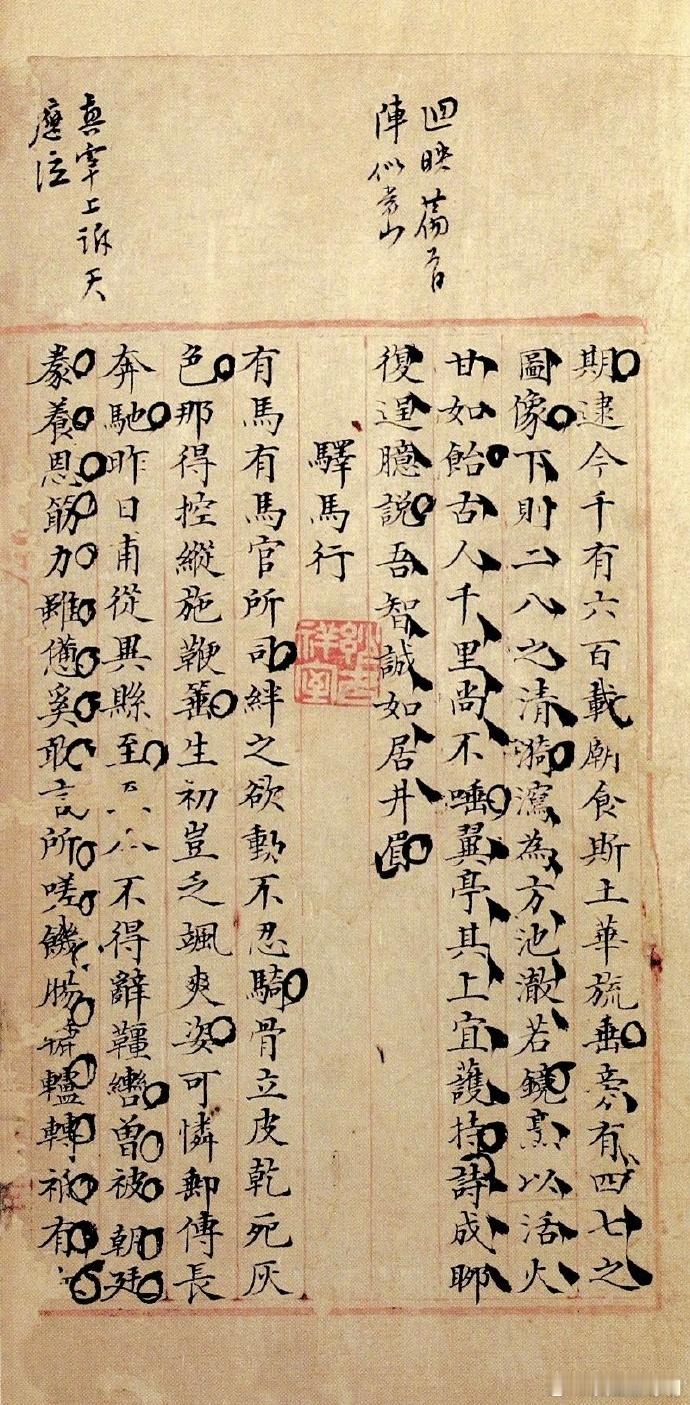 迴映篇首
陣似常山
真宰上訴天
應泣
期逮今千有六百載廟食斯土華旒垂旁有四七之
圖像下則二八之清漪瀉為方池澈若鏡烹以活火
甘如飴古人千里尚不唾翼亭其上宜護持詩成聊
復逞臆說吾智誠如居井眉
驛馬行
有馬有馬官所司絆之欲動不忍騎骨立皮乾死灰
色那得控縱施鞭箠生初豈乏颯爽姿可憐郵傳長
奔馳昨日甫從異縣至不得辭韁轡曾被朝廷
豢養恩筋力雖憊奚敢言所嗟饑腸轆轉祗有